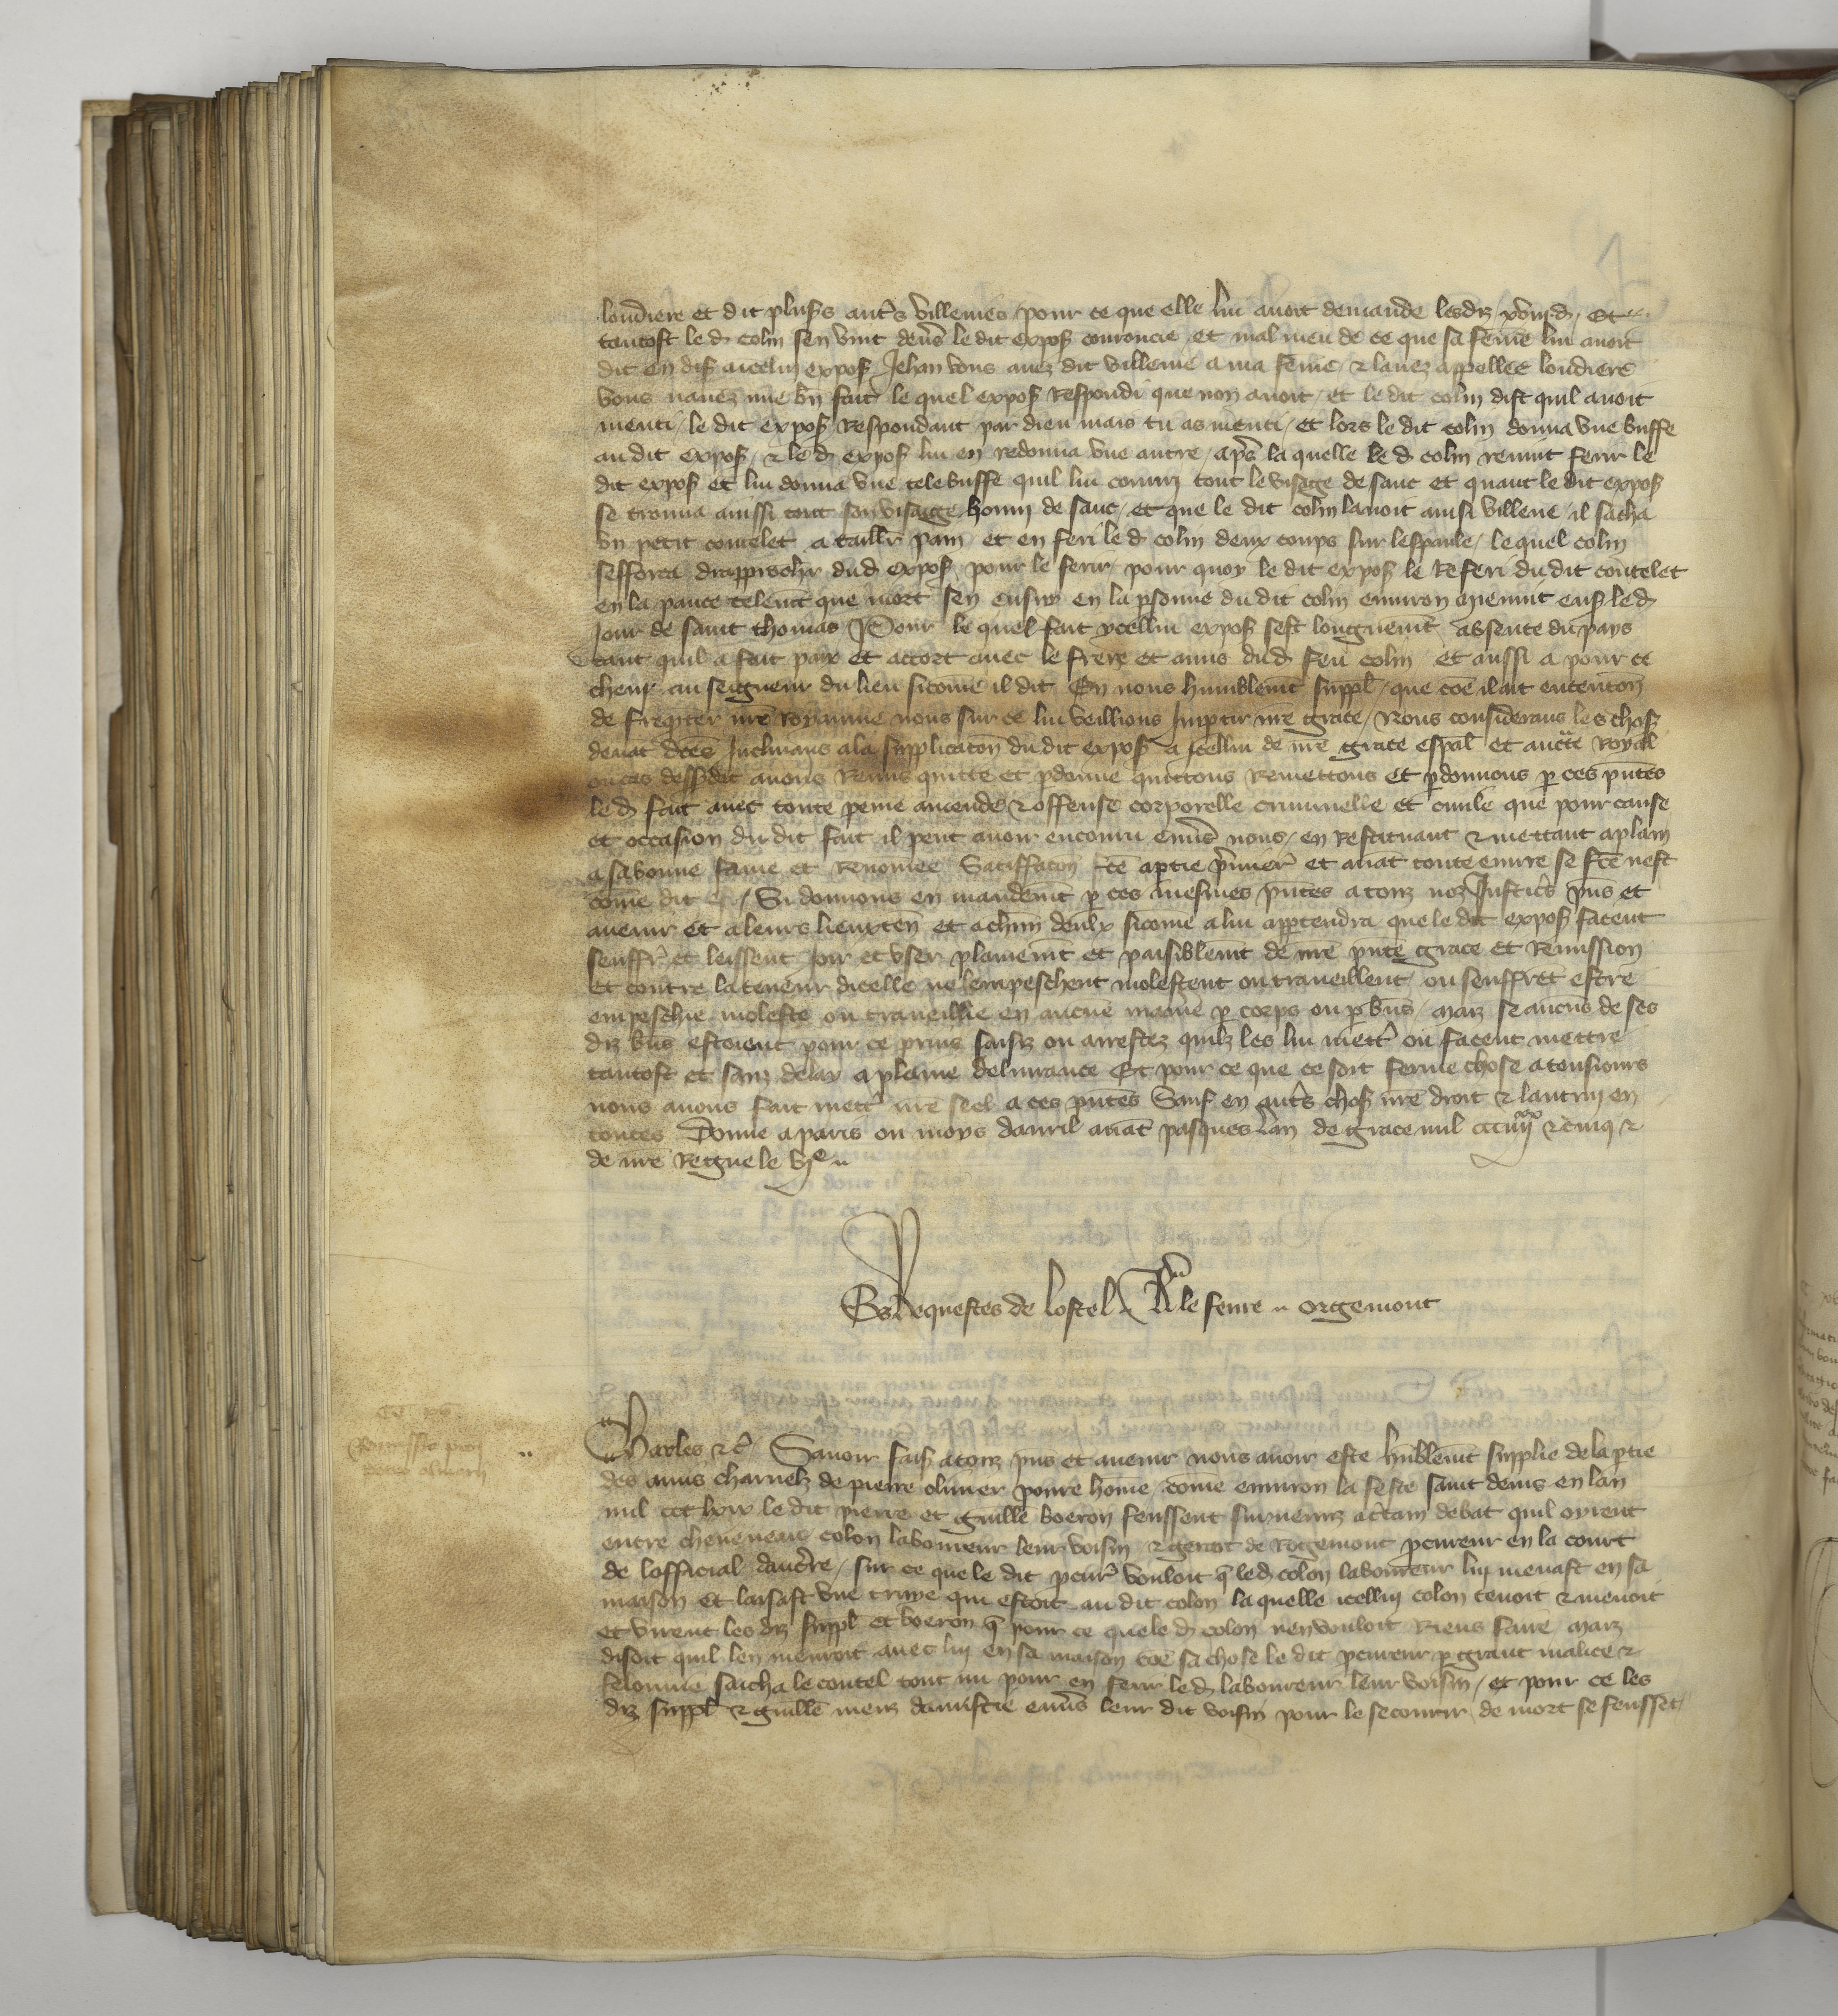 loudiere et dit plus̃s aut̾s villenies / pour ce que elle lui avoit demande lesdiz xviij d̃ / Et
tantost le d̃ colin sen vint dev̾s le dit expoß couroucie et mal meu de ce que sa feme lui avoit
dit en diß aicelui expoß Jehan vous avez dit villenie a ma feme / ⁊ lavez appellee loudiere
vous navez mie bn̄ fait le quel expoß Respondi que non avoit / et le dit colin dist quil avoit
menti / le dit expoß Respondant par dieu mais tu as menti / et lors le dit colin donna vne buffe
audit expoß / ⁊ le d̃ expoß lui en redonna vne autre / ap̾s la quelle le d̃ colin revint ferir le
dit expoß et lui donna vne tele buffe quil lui couurj tout le visage de sanc et quant le dit expoß
se trouua ainssi tout son visaige honni de sanc / et que le dit colin lavoit ainsi villene / il sacha
vn petit coutelet a taillr̃ pain et en feri le d̃ colin deux coups sur lespaule / le quel colin
sefforca drappreschr̃ dud̃ expoß pour le ferir / pour quoy le dit expoß le Referi du dit coutelet
en la pance telem̄t que mort sen ensuy en la psonne du dit colin environ mienuit enß led̃
Jour de saint thomas / Pour le quel fait ycellui expoß sest longuem̄t absente du pays
tant quil a fait paix et accort avec le frere et amis dud̃ feu colin et aussi a pour ce
chevi au seigneur du lieu sicome il dit En nous humblem̄t suppl̃ / que cōe il ait entenc̄on
de freqnter nr̄e Royaume nous sur ce lui veillions Jmptir nr̄e grace / Nous considerans les choß
devāt dc̄es Jnclinans ala supplicac̄on du dit expoß a Jcellui de nr̄e grace esp̄al et auct̄te Royal
ou cas dessßdit avons Remis quitte et pdonne quittons Remettons et pdonnons p ces pn̄tes
le d̃ fait avec toute peine amende ⁊ offense corporelle criminelle et civile que pour cause
et occasion du dit fait il peut avoir encouru env̾s nous / en Restituant ⁊ mettant aplain
a sa bonne fame et Renomee Satiffac̄on fc̄e aptie p̾mier̃ et avāt toute euvre se fc̄e nest
cōme dit est / Si donnons en mandem̄t p ces mesmes pn̄tes a touz noz Justic̾s pn̄s et
avenir et a leurs lieuxten̄ et achūn deulx sicome a lui apptendra que le dit expoß facent
seuffr̃ et leissent Joir et vser plainem̄t et paisiblem̄t de nr̄e pn̄te grace et Remission
et contre la teneur dicelle ne lempeschent molestent ou traveillent ou seuffrēt estre
empeschie moleste ou traveillie en aucūe manie̾ p corps ou p bn̄s / maiz se aucūs de ses
diz bn̄s estoient pour ce prins saisiz ou arrestez quilz les lui mett̾ ou facent mettre
tantost et sanz delay a pleine delivrance Et pour ce que ce soit ferme chose a tousiours
nous avons fait mett̾ nr̄e seel a ces pn̄tes Sauf en aut̾s choß nr̄e droit ⁊ lautruy en
toutes Donne a paris ou moys davril avāt pasques lan de grace mil ccciiijxx ⁊ cinq ⁊
de nr̄e Regne le vje
Es Requestes de lostel J le feure orgemont
Remissio pro
petro oliverij
Charles ⁊c̾ Savoir faisß atouz pn̄s et avenir nous avoir este humblem̄t supplie de la ptie
des amis charnelz de pierre olivier povre home / come environ la feste saint denis en lan
mil ccc lxxx le dit pierre et guille boeron feussent survenuz act̾ain debat quil oyrent
entre cheneveau colon laboureur leur voisin ⁊ gerart de Rogemont pcureur en la court
de lofficial daucerre / sur ce que le dit pcur̾ vouloit q̄ led̃ colon laboureur luy menast en sa
maison et laissast vne truye qui estoit au dit colon la quelle icelluy colon tenoit ⁊ menoit
et virent les diz suppl̃ et boeron q̄ pour ce que le d̃ colon nen vouloit Riens faire maiz
disoit quil len menroit avec luy en sa maison cōe sa chose le dit pcureur p grant malice ⁊
felonnie saicha le coutel tout nu pour en ferir le d̃ laboureur leur voisin / et pour ce les
diz suppl̃ ⁊ guille meuz damistie env̾s leur dit voisin pour le secourir de mort se feussēt